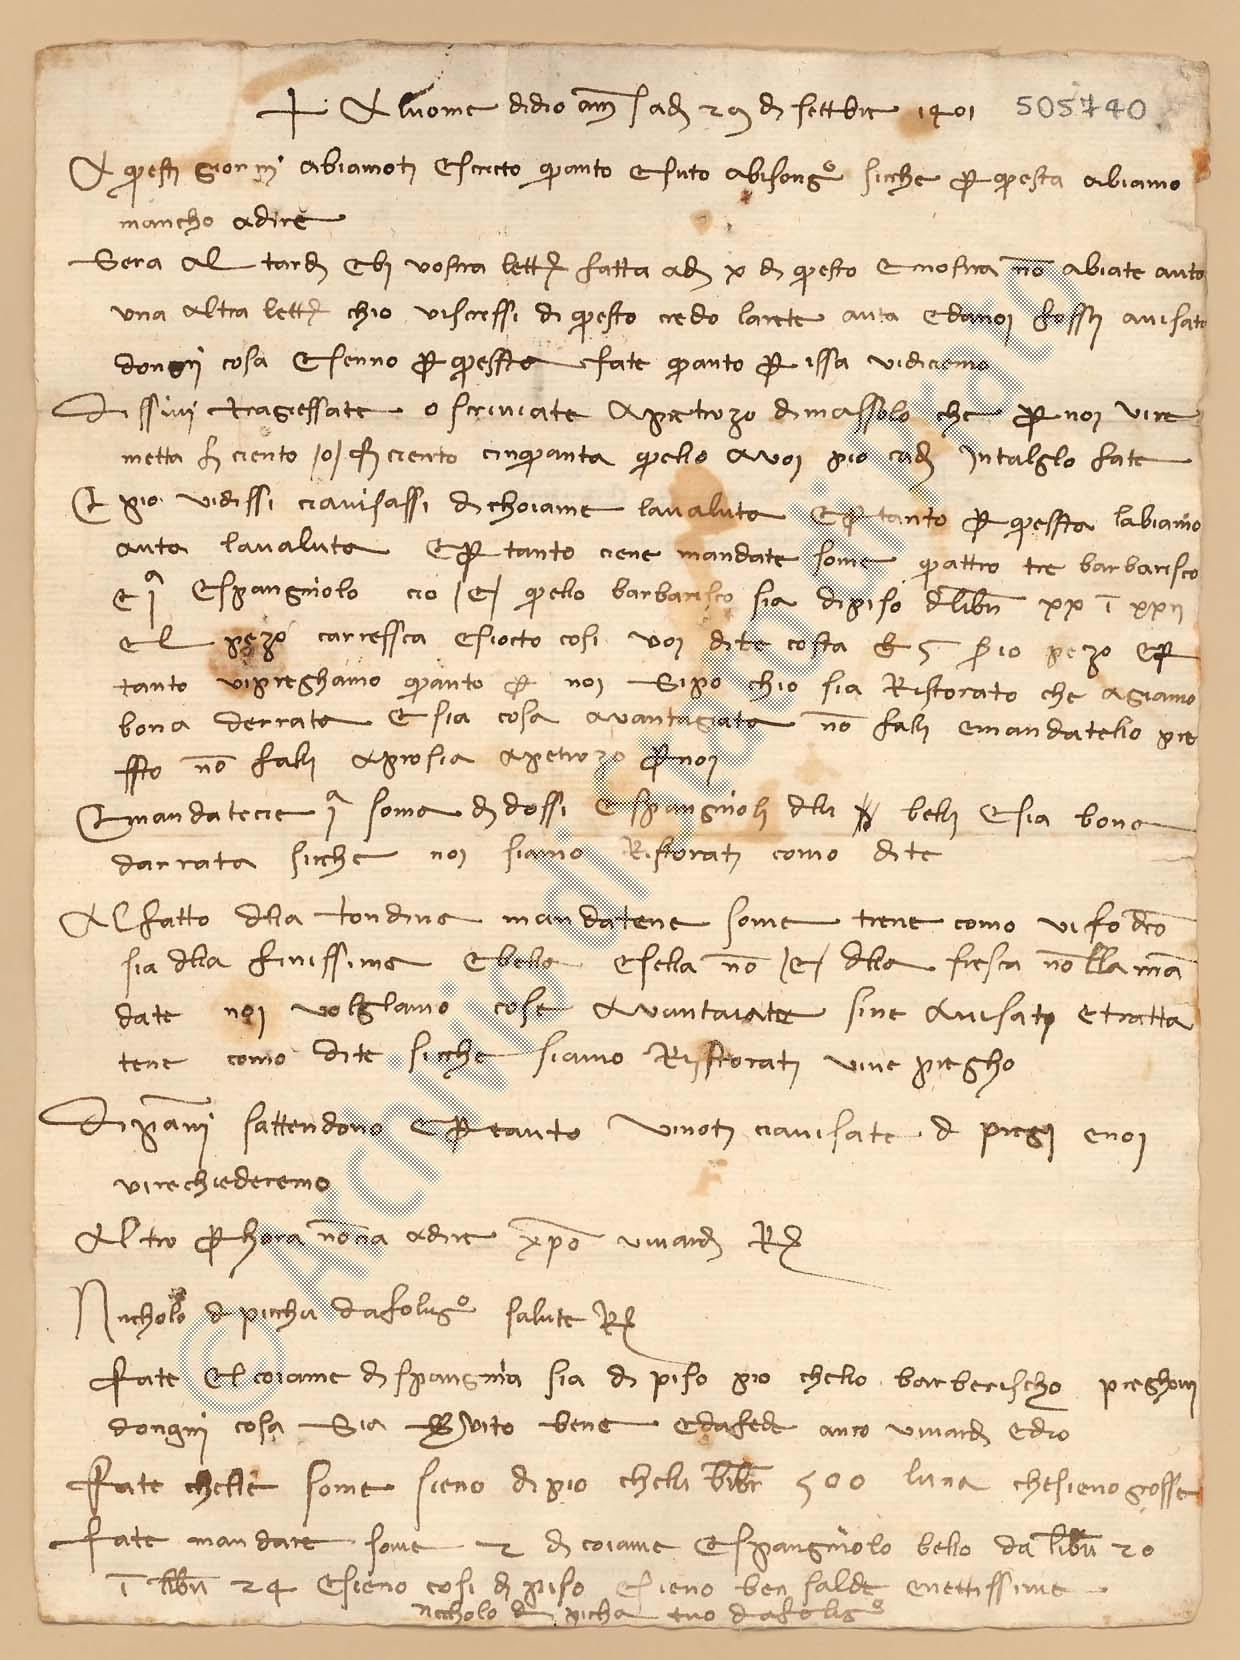 + Al nome didio am̅ adj 29 dj settbre 1401 505740
A questi giorni abiamoti escricto quanto esuto abisongo sicche per questa abiamo
mancho adire
Sera al tardj ebj vostra lettera fatta adj x dj questo enostra no̅ abiate auto
una altra lettera chio viscrissi di questo credo larete auta edanoi fossti avisato
dongni cosa esenno per quessta fate quanto per issa vidiciemo
Dissivi tragiessate o scriviate apetrozo dimassolo che per noi vire
metta f ciento /o/ f ciento cinquanta quello avoi pio cadj intalglo fate
E pio vidissi ciavisassi dichoiame lavaluta epertanto per quessta labiamo
auta lavaluta eper tanto ciene mandate some quattro tre barbarisco
e i̅a espangniolo cio /e/ quello barbarisco sia dipiso dlibr xx i̅ xxij
el pezo carressca esiocto cosi voi dite costa f 5 s 10 pezo eper
tanto vipreghamo quanto per noi sipo chio sia Ristorato che agiamo
bona derrata esia cosa avantagiata no̅ falli emandatello pre
ssto no̅ falli apiosia apetrozo per noi
Emandatecie i̅a soma dj dossi espangnioli dlli belli esia bona
darrata sicche noi siamo Ristorati como dite
Al fatto dlla tondina mandatene some trene como vi fo dco̅
sia dlla finissima ebella esella no̅ /e/ dlla fresca no̅lla ma̅
date noi volglamo cose avantaiate sine avisato etratta
tene como dite sicche siamo Risstorati vine pregho
Di pa̅ni sattendono epertanto vinoti ciavisate d pregi enoi
virechiederemo
Altro per hora no̅cia adire xpo̅ vivardj R
Nicholo d piccha dafoligo salute R
Fate el coiame di spangnia sia di piso pio chello barberischo preghovi
dongni cosa sia svito bene edafede anco vivardj edio
Fate chelle some sieno di pio chelli libr 500 luna chesieno grosse
Fate mandare some 2 dj coiame espangniolo bello da libr 20
i̅ libr 24 esieno cosi dj piso esieno ben salde enettissime
nicholo d picha tuo dafoligo